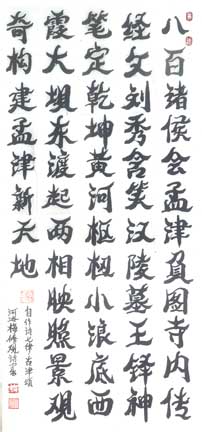 八百诸侯会孟津负图寺内传
经文刘秀含笑汉陵墓王铎神
笔定乾坤黄河枢纽小浪底西
霞大坝东渡起两相映照景观
奇构建孟津新天地
自作诗七律古津颂